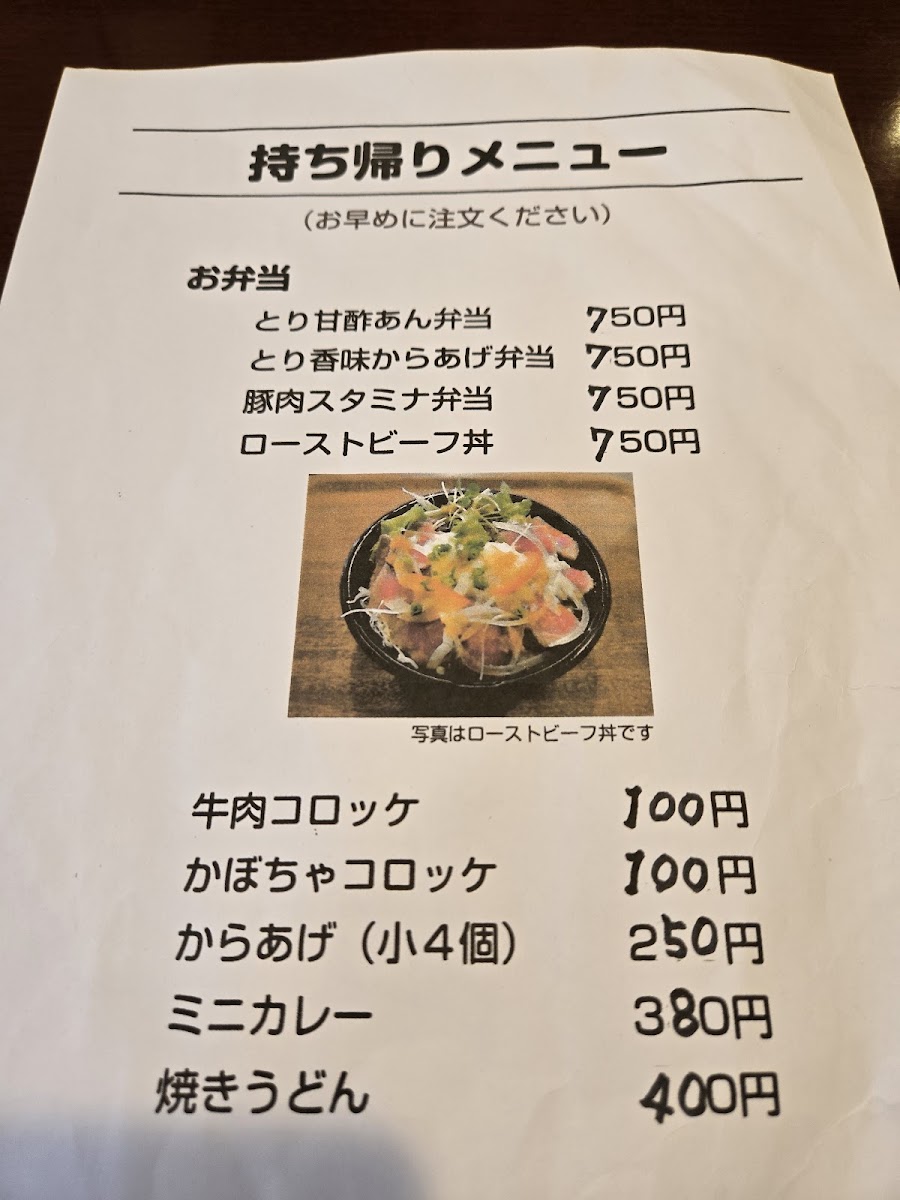 持ち帰りメニュー
（お早めに注文ください）
お弁当
とり甘酢あん弁当 750円
とり香味からあげ弁当 750円
豚肉スタミナ弁当 750円
ローストビーフ丼 750円
写真はローストビーフ丼です
牛肉コロッケ 100円
かぼちゃコロッケ 100円
からあげ（小４個） 250円
ミニカレー 380円
焼きうどん 400円